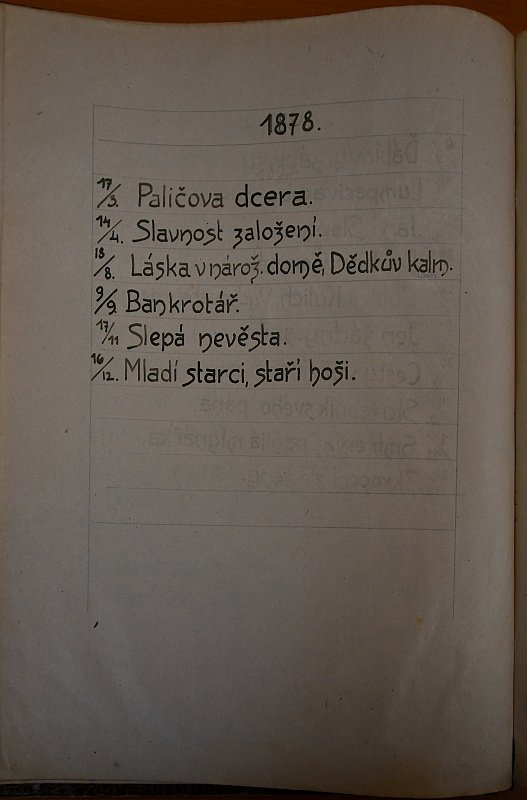 1878.
17/3. Paličova dcera.
14/4. Slavnost založení.
18/8. Láska v nárož. domě, Dědkův kalm.
9/9. Bankrotář.
17/11 Slepá nevěsta.
16/12. Mladí starci, staří hoši.